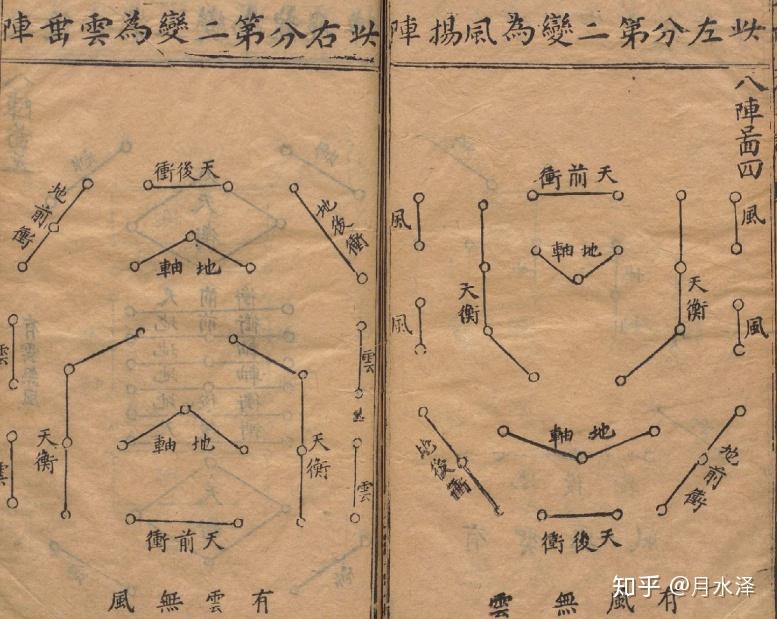 八陣啚四
此左分第二變為風揚陣
天前衝
風
風
地軸
天衡
天衡
風
風
地軸
地前衝
地後衝
天後衝
有風無雲
此右分第二變為雲垂陣
天後衝
地後衝
地前衝
地軸
雲
雲
地軸
天衡
天衡
雲
雲
天前衝
有雲無風
知乎 @月水泽